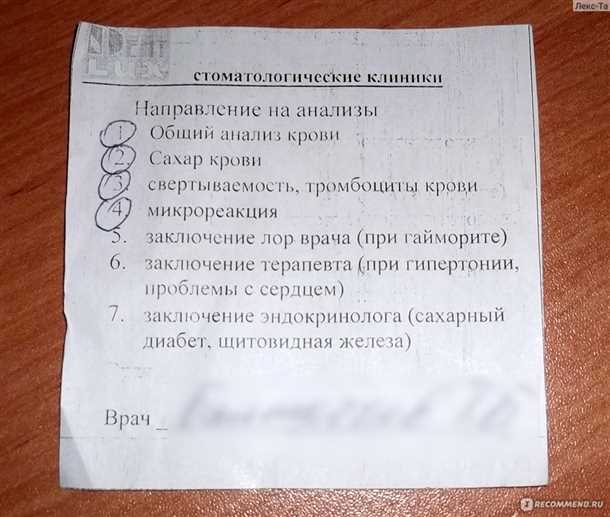 Лекс-Та
DENT
LUX
стоматологические клиники
Направление на анализы
1. Общий анализ крови
2. Сахар крови
3. свертываемость, тромбоциты крови
4. микрореакция
5. заключение лор врача (при гайморите)
6. заключение терапевта (при гипертонии,
проблемы с сердцем)
7. заключение эндокринолога (сахарный
диабет, щитовидная железа)
Врач _
RECOMMEND.RU